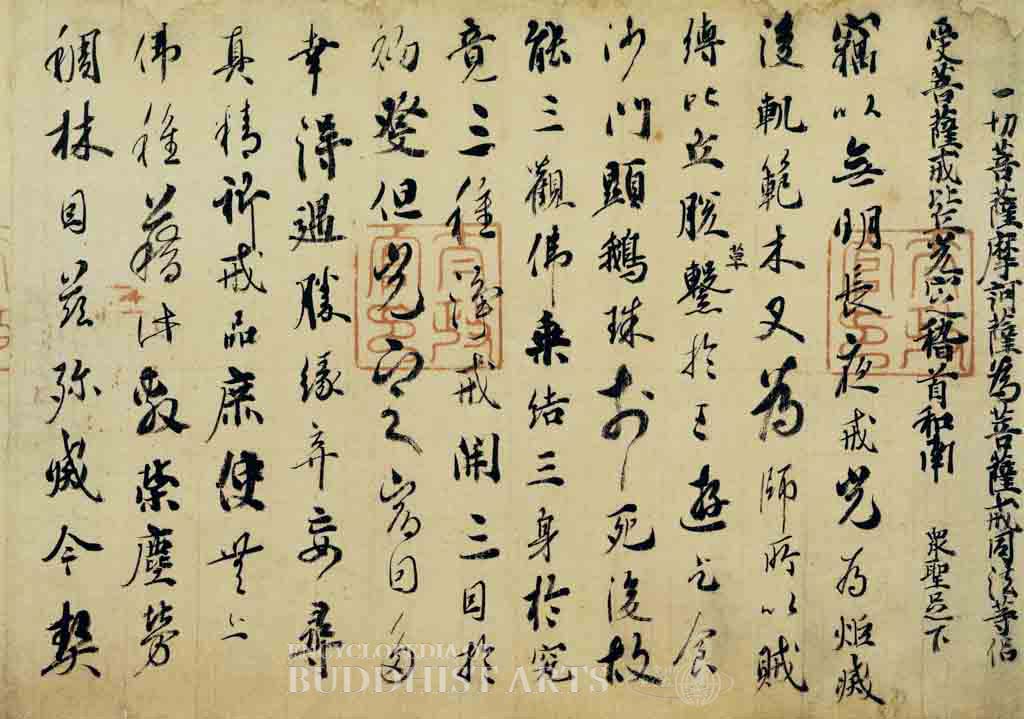 一切菩薩摩訶薩為菩薩戒同法等侶
受菩薩戒比丘光定稽首和南 衆聖足下
竊以無明長夜戒光為炬滅
後軌範木叉為師所以賊
縛比丘脫草繫於王遊乞食
沙門顯鵝珠於死後故
能三觀佛乘結三身於究
竟三種淨戒開三因於
初發但光定宿因多
幸得遇勝緣弃妄尋
真精祈戒品庶使無上
佛種藉此敷榮塵勞
稠林因茲殄滅今契
ENCYCLOPEDIA OF
BUDDHIST ARTS